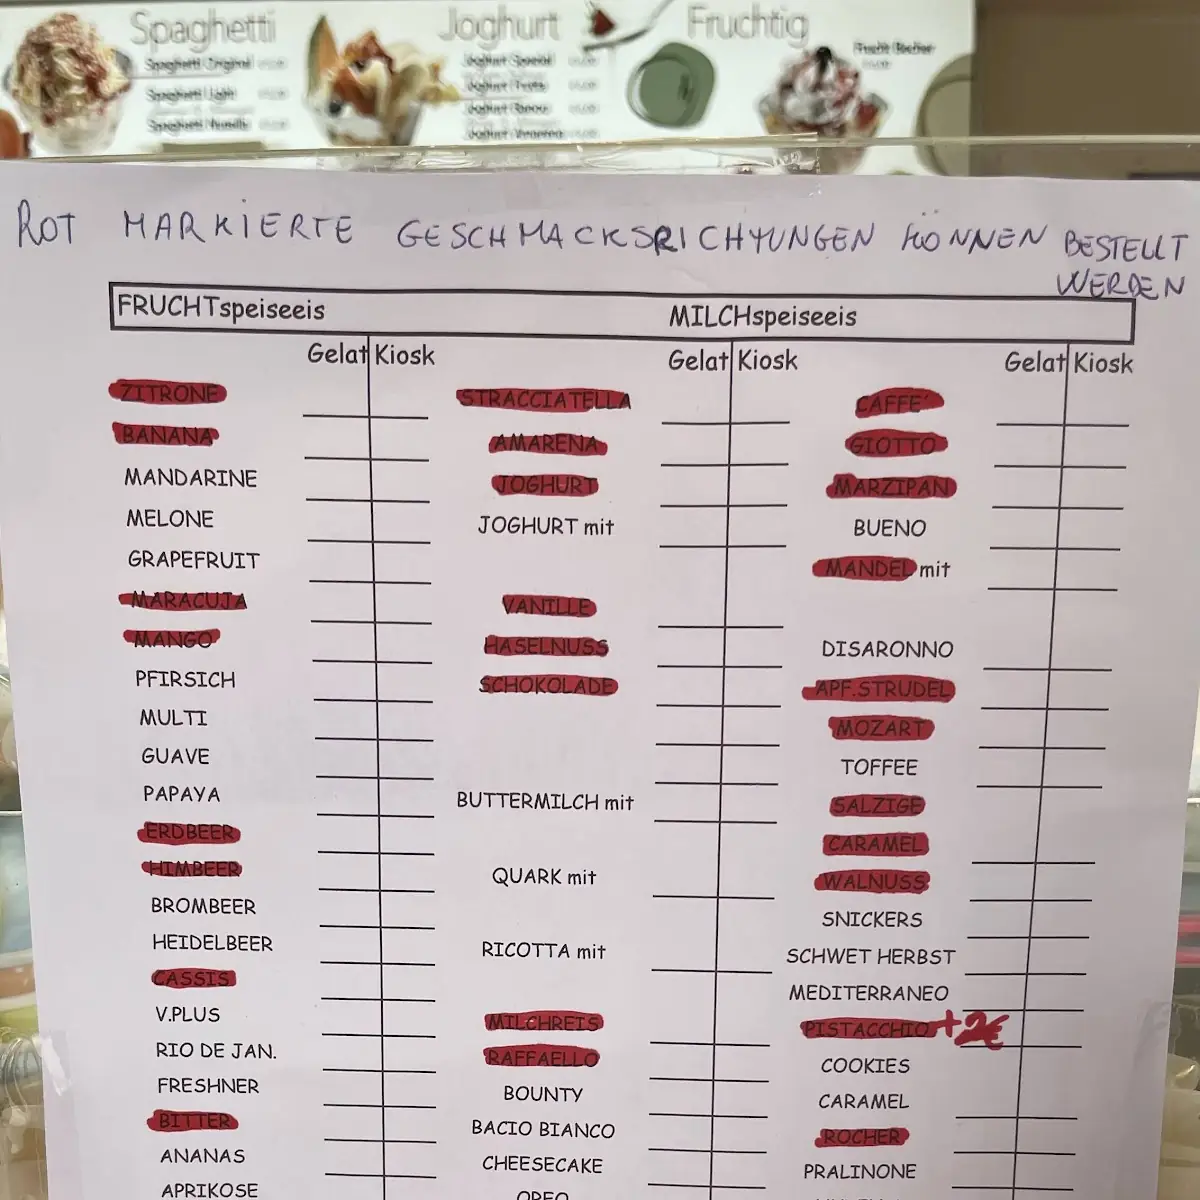 Spaghetti
Spaghetti Original
Spaghetti Light
Joghurt
Joghurt Spezial
Fruchtig
Frucht Becher
ROT MARKIERTE GESCHMACKSRICHTUNGEN KÖNNEN BESTELLT
WERDEN
FRUCHTspeiseeis
MILCHspeiseeis
Gelat Kiosk
ZITRONE
BANANA
MANDARINE
MELONE
GRAPEFRUIT
MARACUJA
MANGO
PFIRSICH
MULTI
GUAVE
PAPAYA
ERDBEER
HIMBEER
BROMBEER
HEIDELBEER
CASSIS
V.PLUS
RIO DE JAN.
FRESHNER
BITTER
ANANAS
APRIKOSE
Gelat Kiosk
STRACCIATELLA
AMARENA
JOGHURT
JOGHURT mit
VANILLE
HASELNUSS
SCHOKOLADE
BUTTERMILCH mit
QUARK mit
RICOTTA mit
MILCHREIS
RAFFAELLO
BOUNTY
BACIO BIANCO
CHEESECAKE
OREO
Gelat Kiosk
CAFFE'
GIOTTO
MARZIPAN
BUENO
MANDEL mit
DISARONNO
APF.STRUDEL
MOZART
TOFFEE
SALZIGE
CARAMEL
WALNUSS
SNICKERS
SCHWET HERBST
MEDITERRANEO
PISTACCHIO +2€
COOKIES
CARAMEL
ROCHER
PRALINONE